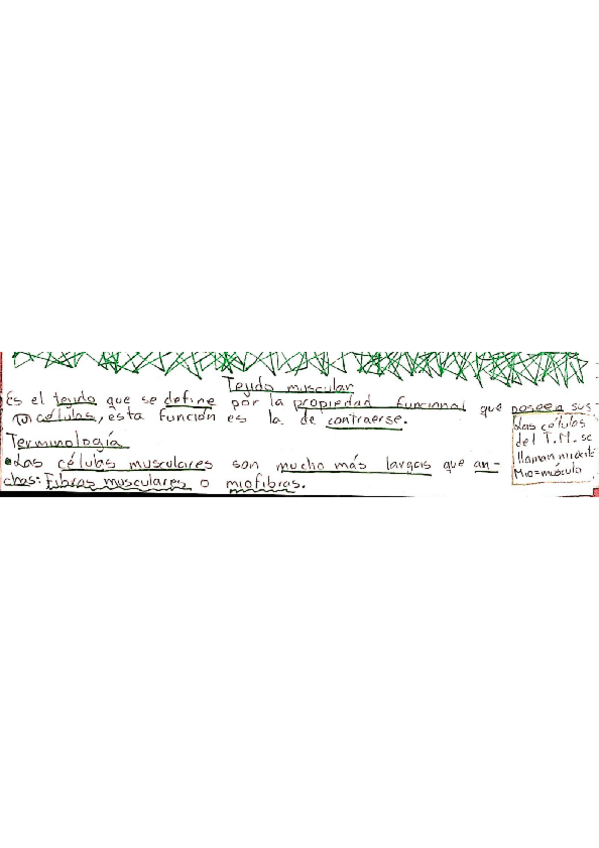 Tejido muscular
Es el tejido que se define por la propiedad funcional que poseen sus
células, esta función es la de contraerse.
Terminología
•Las células musculares son mucho más largas que an-
chas: Fibras musculares o miofibras.
Las células
del T.M. se
llaman
Mio=músculo